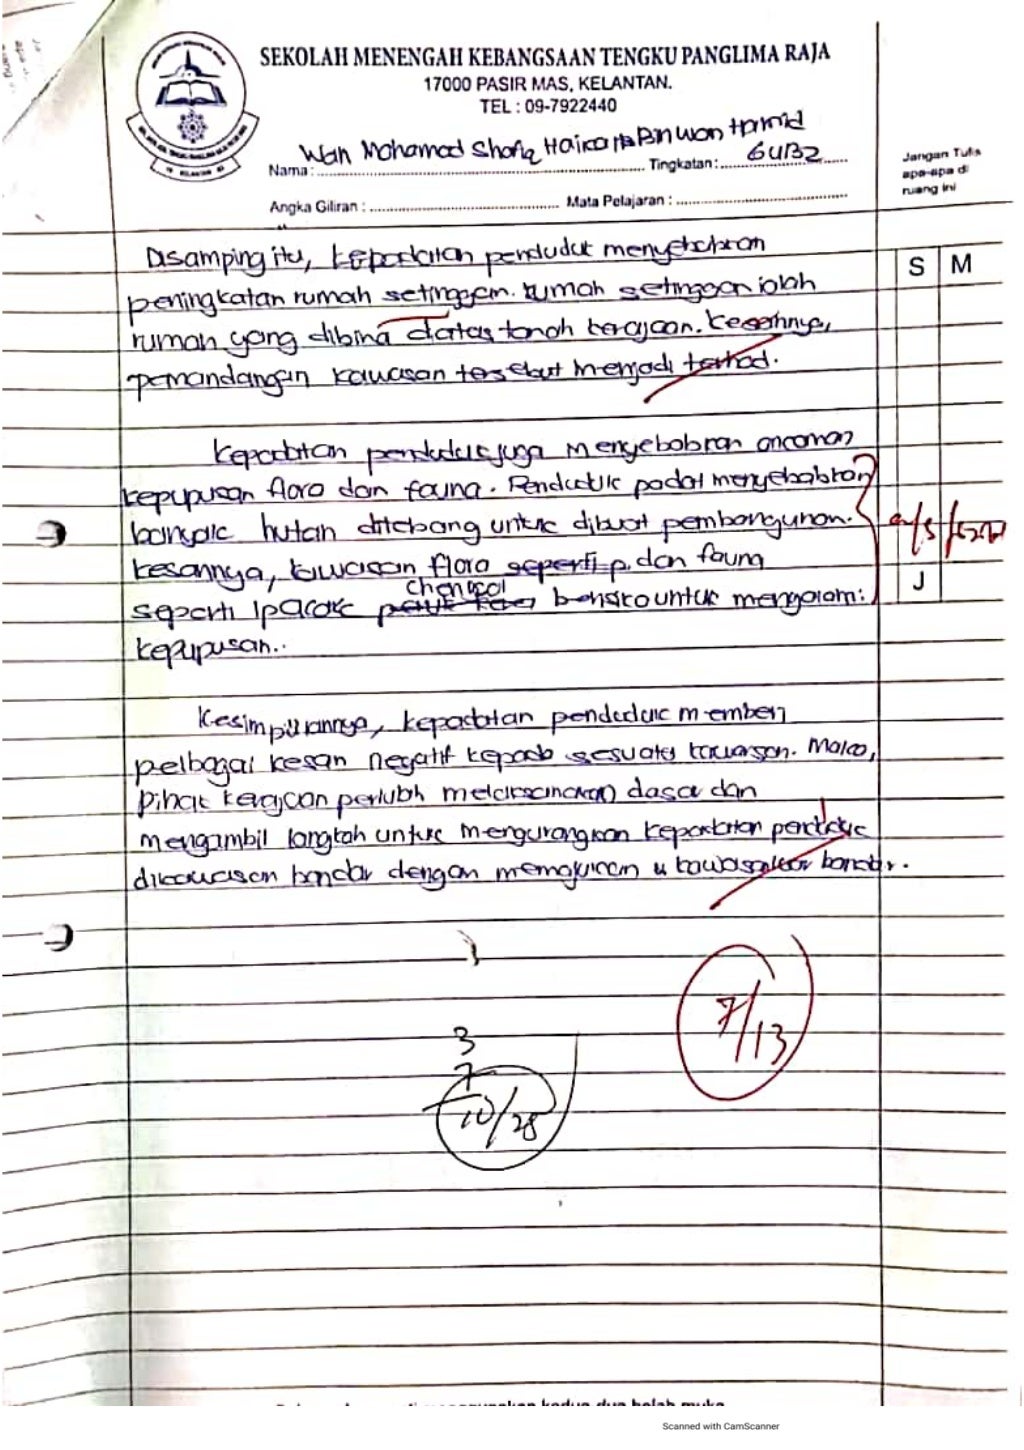 SEKOLAH MENENGAH KEBANGSAAN TENGKU PANGLIMA RAJA
17000 PASIR MAS, KELANTAN.
TEL : 09-7922440
Nama : Wan Mohamad Bin Wan Hamid Tingkatan : 6UB2
Angka Giliran : Mata Pelajaran :
Jangan Tulis
apa-apa di
ruang ini
S M
Disamping itu, kepadatan penduduk menyebabkan
peningkatan rumah setinggan. rumah setinggan ialah
rumah yang dibina diatas tanah kerajaan. Kesannya,
pemandangan kawasan tersebut menjadi terhad.
Kepadatan penduduk juga menyebabkan ancaman
kepupusan flora dan fauna. Penduduk padat menyebabkan
banyak hutan ditebang untuk dibuat pembangunan.
kesannya, kawasan flora seperti p. dan fauna
chengal
seperti untuk mengalami
kepupusan..
J
Kesimpulannya, kepadatan penduduk memberi
pelbagai kesan negatif kepada sesuatu kawasan. Maka,
pihak kerajaan perlulah melaksanakan dasar dan
mengambil langkah untuk mengurangkan kepadatan penduduk
dikawasan bandar dengan memajukan u kawasan luar bandar.
7/13
3
7
10/28
Scanned with CamScanner